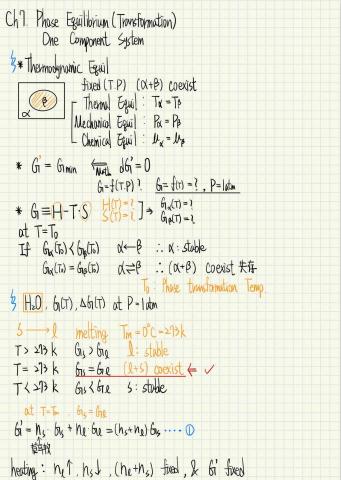 Ch7. Phase Equilibrium (Transformation)
One Component System
* Thermodynamic Equil
fixed (T.P) (α+β) coexist
Thermal Equil : Tα = Tβ
Mechanical Equil : Pα = Pβ
Chemical Equil : μα = μβ
α β
* G' = Gmin ⟸ Math dG' = 0
G = f(T.P) ? G = f(T) = ? , P = 1atm
* G ≡ H - T·S H(T) = ? S(T) = ? ] → Gα(T) = ? Gβ(T) = ?
at T = T₀
If Gα(T₀) < Gβ(T₀) α ← β ∴ α : stable
Gα(T₀) = Gβ(T₀) α ⇌ β ∴ (α+β) coexist 共存
T₀ : Phase transformation Temp.
H₂O , G(T), ΔG(T) at P = 1atm
s → l melting Tm = 0°C = 273k
T > 273 k Gs > Gl l : stable
T = 273 k Gs = Gl (l+s) coexist ⇐ ✓
T < 273 k Gs < Gl s : stable
at T = Tm , Gs = Gl
G' = ns · Gs + nl · Gl = (ns + nl) Gs ····· ①
莫耳數
heating : nl↑, ns↓, (nl+ns) fixed, & G' fixed